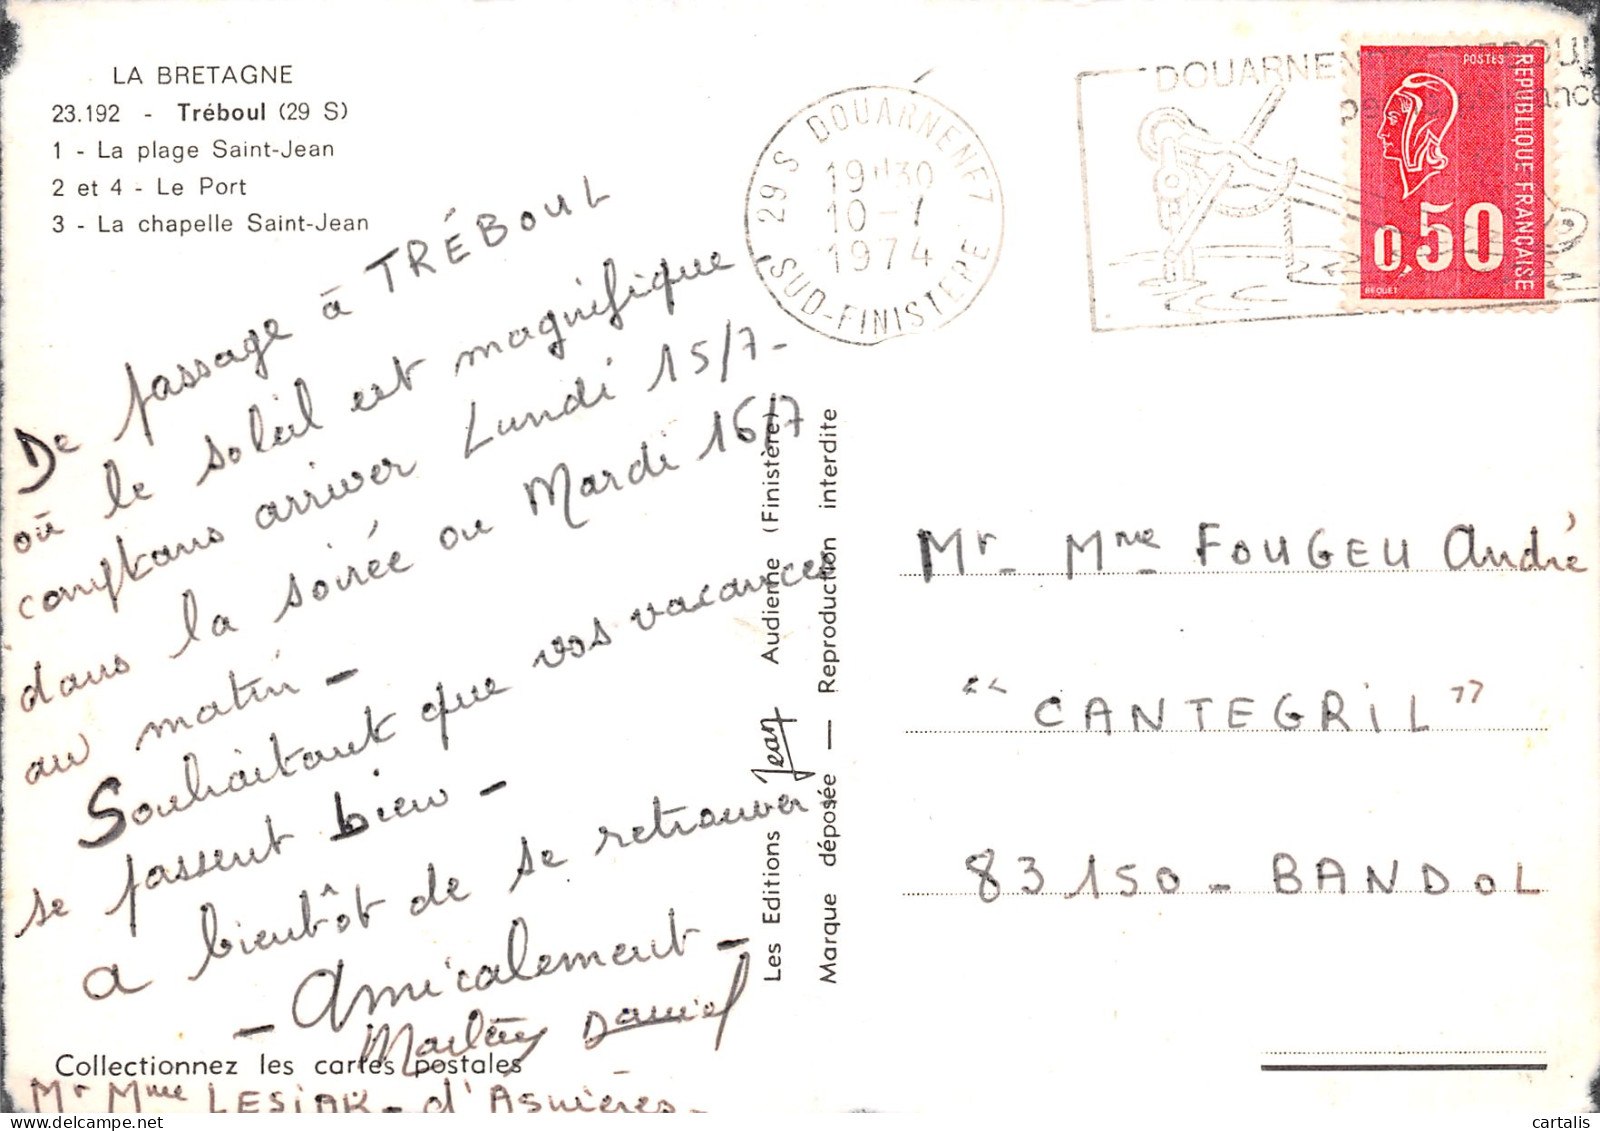 LA BRETAGNE
23.192 - Tréboul (29 S)
1 - La plage Saint-Jean
2 et 4 - Le Port
3 - La chapelle Saint-Jean
De passage à TRÉBOUL
où le soleil est magnifique -
comptons arriver Lundi 15/7-
dans la soirée ou Mardi 16/7
au matin -
Souhaitant que vos vacances
se passent bien -
a bientôt de se retrouver
- Amicalement -
Daniel
Collectionnez les cartes postales
Mr Mme LESIAK - d'Asnières -
Les Editions Jean Audierne (Finistère)
Marque déposée — Reproduction interdite
29 S DOUARNENEZ
19H30
10-7
1974
SUD-FINISTERE
DOUARNEN
POSTES
REPUBLIQUE FRANÇAISE
0,50
BEQUET
Mr - Mme FOUGEU André
"CANTEGRIL"
83150 - BANDOL
cartalis